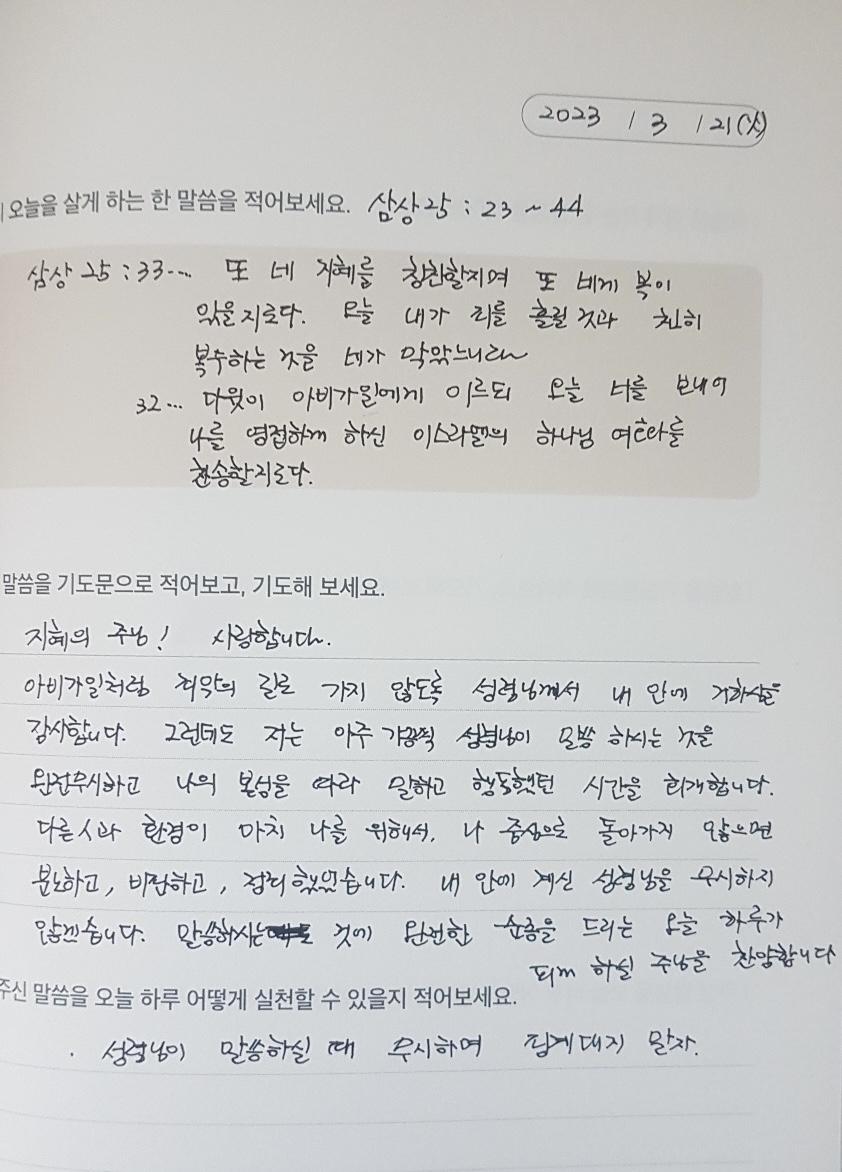 2023 / 3 / 21(화)
오늘을 살게 하는 한 말씀을 적어보세요. 삼상25 : 23 ~ 44
삼상 25 : 33... 또 네 지혜를 칭찬할지며 또 네게 복이
있을지로다. 오늘 내가 피를 흘릴 것과 친히
복수하는 것을 네가 막았느니라
32... 다윗이 아비가일에게 이르되 오늘 너를 보내어
나를 영접하게 하신 이스라엘의 하나님 여호와를
찬송할지로다.
말씀을 기도문으로 적어보고, 기도해 보세요.
지혜의 주님! 사랑합니다.
아비가일처럼 죄악의 길로 가지 않도록 성령님께서 내 안에 거하심을
감사합니다. 그런데도 저는 아주 가끔씩 성령님이 말씀 하시는 것을
완전무시하고 나의 본성을 따라 말하고 행동했던 시간을 회개합니다.
다른 사람과 환경이 마치 나를 위해서, 나 중심으로 돌아가지 않으면
분노하고, 비판하고, 정죄했었습니다. 내 안에 계신 성령님을 무시하지
않겠습니다. 말씀하시는 것에 완전한 순종을 드리는 오늘 하루가
되게 하실 주님을 찬양합니다
주신 말씀을 오늘 하루 어떻게 실천할 수 있을지 적어보세요.
· 성령님이 말씀하실 때 무시하며 핑계대지 말자.